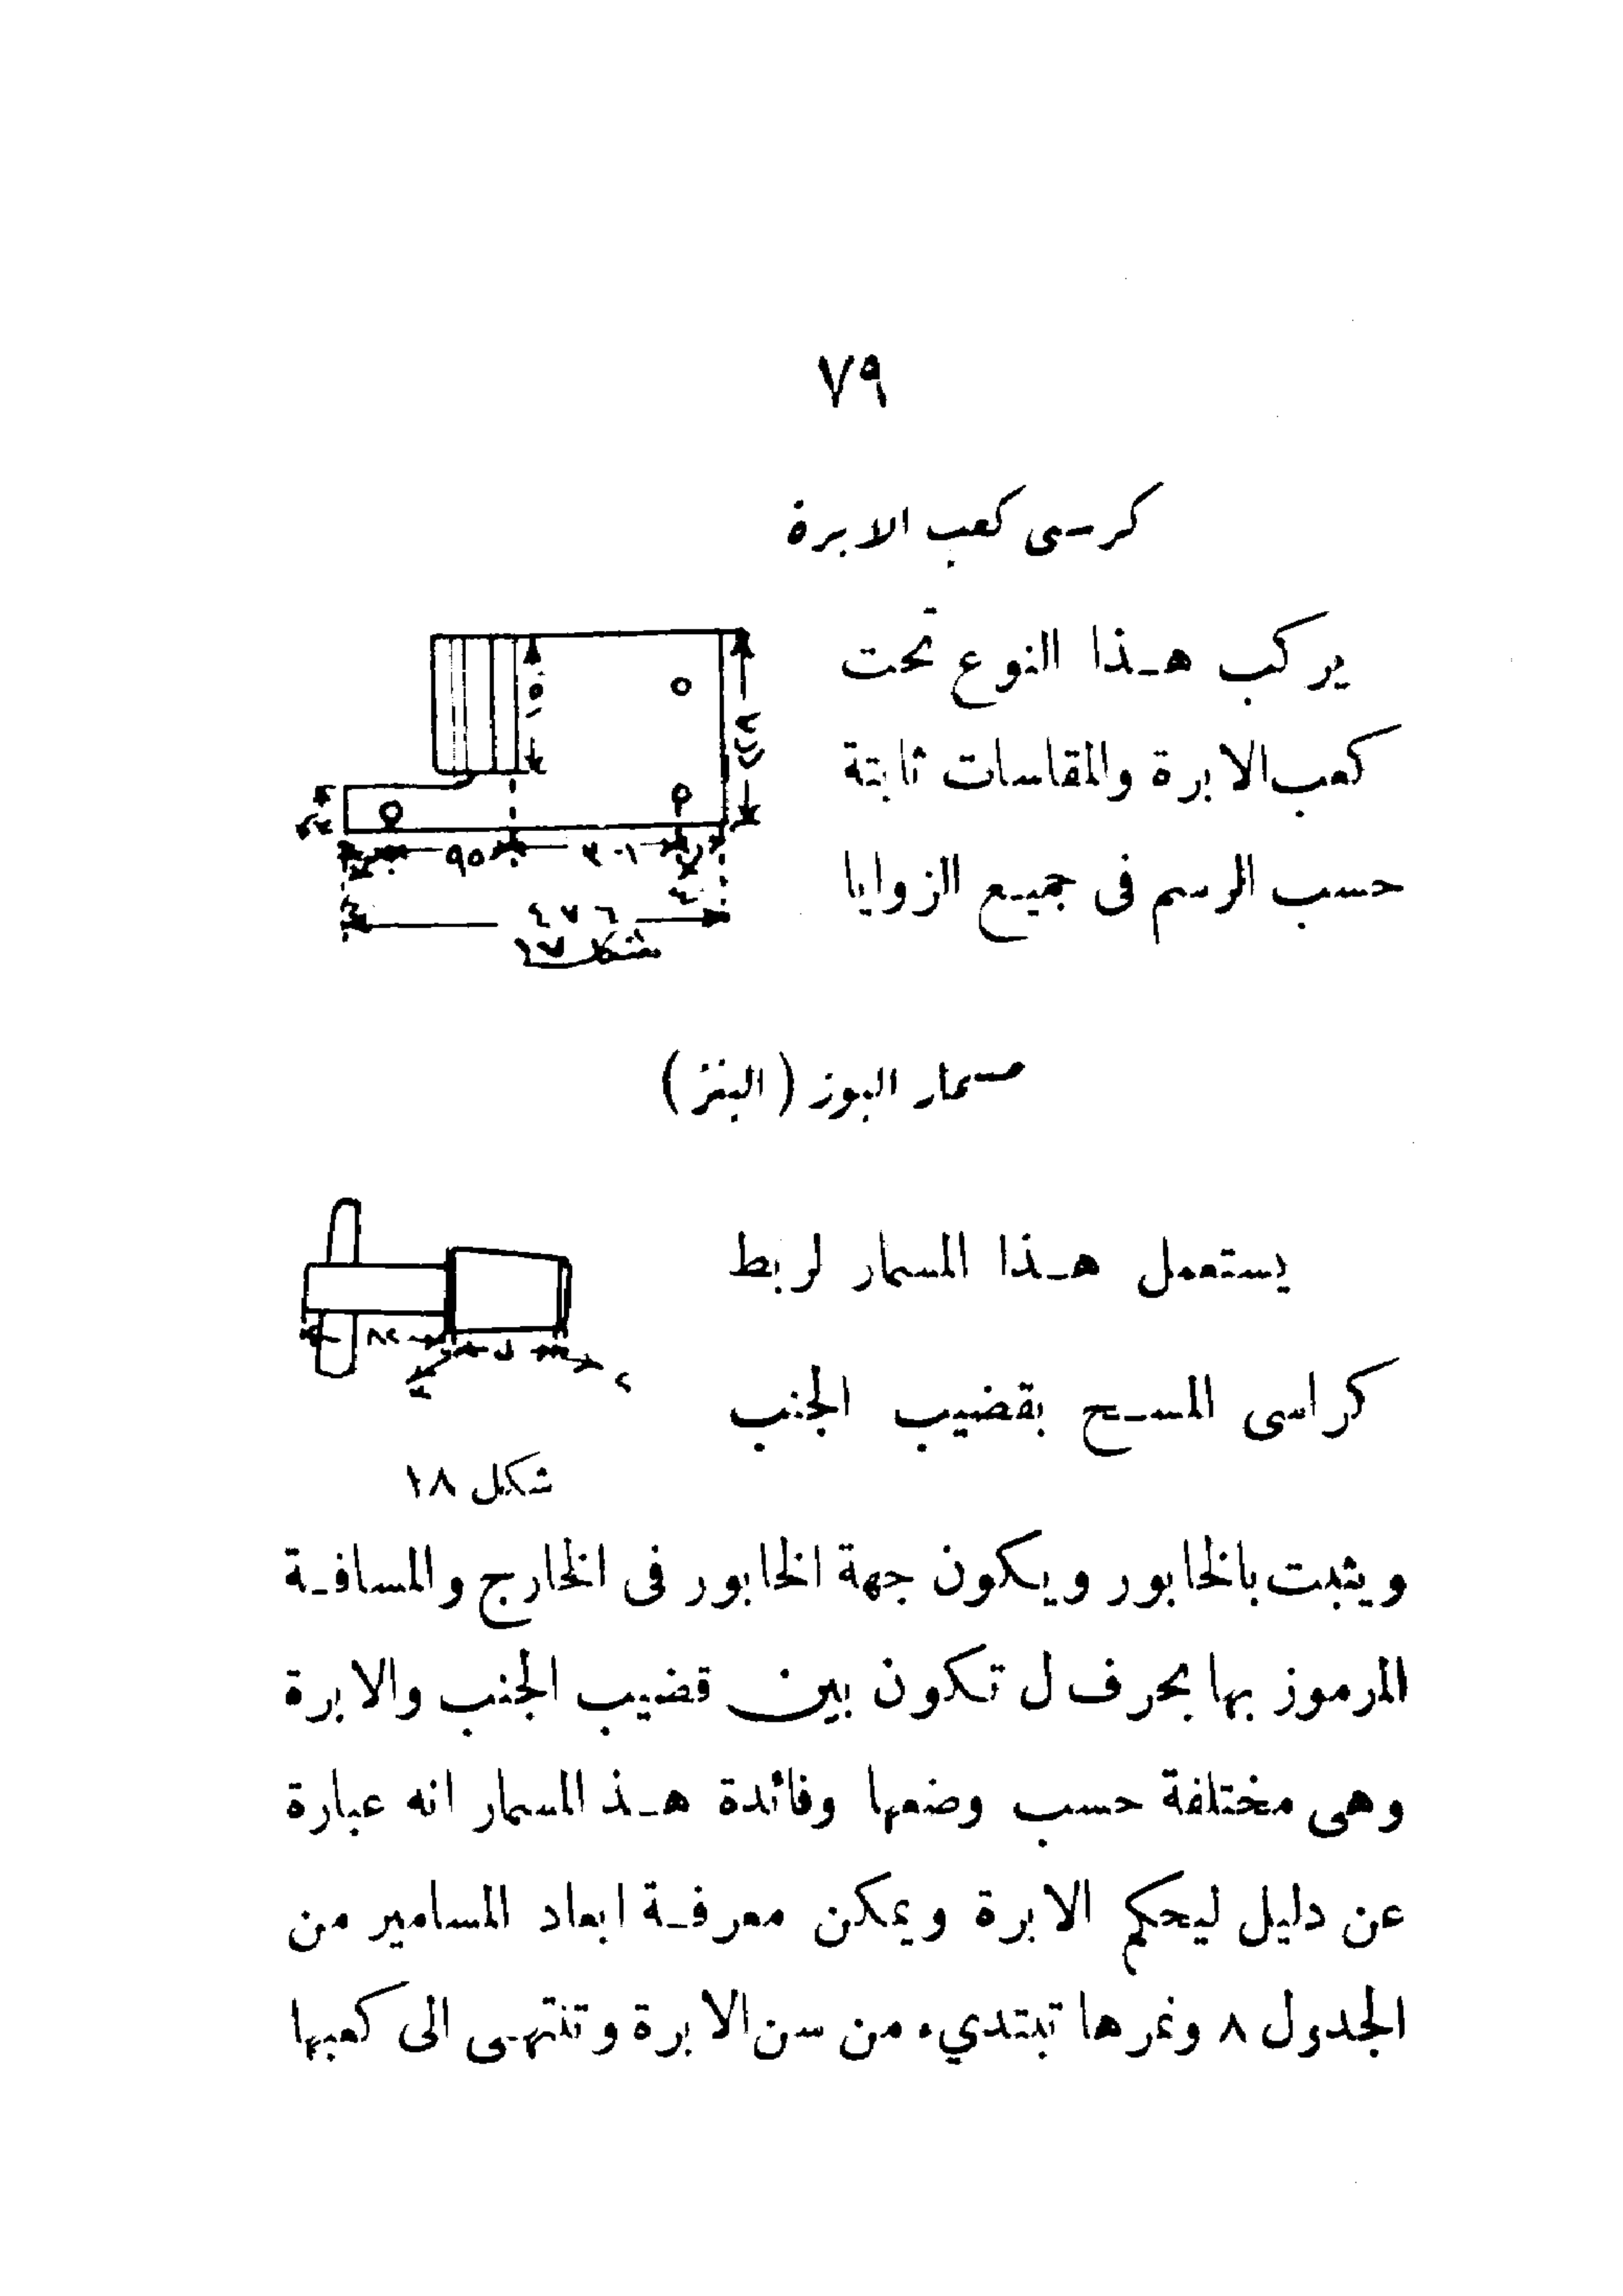 ٧٩
كرسى كعب الابرة
يركب هـذا النوع تحت
كعب الابرة والمقاسات ثابتة
حسب الرسم فى جميـع الزوايا
٩٥
٣٠١
٤٧٦
شكل ١٧
مسمار البوز ( البنز )
يستعمل هـذا المسمار لربط
كراسى المسـح بقضيب الجنب
ل
شكل ١٨
ويثبت بالخابور ويكون جهة الخابور فى الخارج والمسافـة
المرموز بها بحرف ل تكون بين قضيب الجنب والابرة
وهى مختلفة حسب وضعها وفائدة هـذ المسمار انه عبارة
عن دليل ليحكم الابرة ويمكن معرفـة ابعاد المسامير من
الجدول ٨ ونمرها تبتديء من سن الابرة وتنتهـى الى كعبها